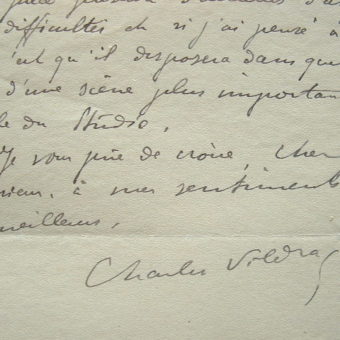 difficultés et si j'ai pensé à
c'est qu'il disposera dans que
d'une scène plus importan
le du Studio.
Je vous prie de croire, Cher
sieur, à mes sentiments
meilleurs.
Charles Vildrac